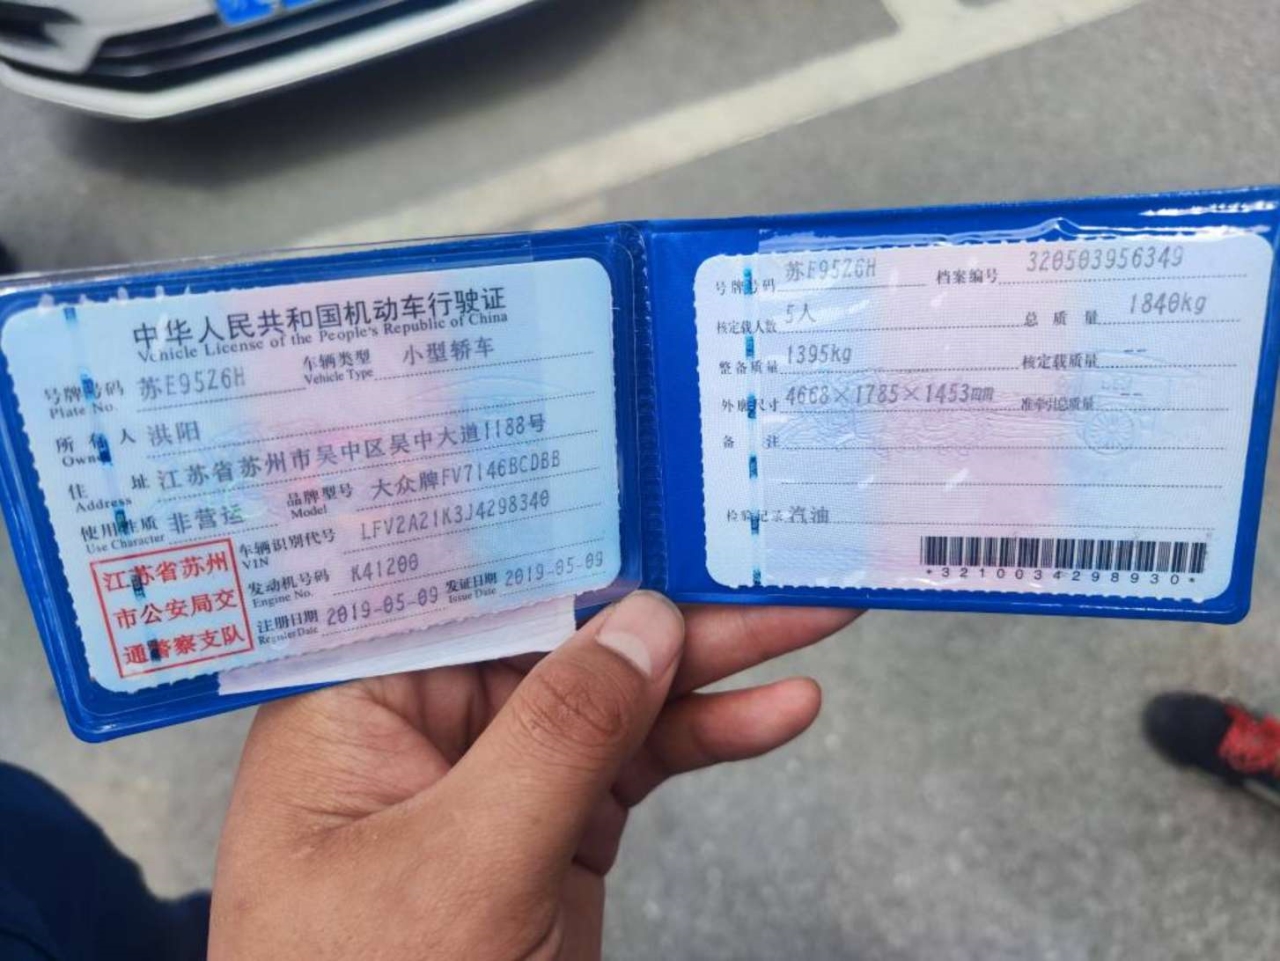 中华人民共和国机动车行驶证
Vehicle License of the People's Republic of China
号牌号码 苏E95Z6H 车辆类型 小型轿车
Plate No. Vehicle Type
所有人 洪阳
Owner
住址 江苏省苏州市吴中区吴中大道1188号
Address
使用性质 非营运 品牌型号 大众牌FV7146BCDBB
Use Character Model
车辆识别代号 LFV2A21K3J4298340
VIN
发动机号码 K41200
Engine No.
注册日期 2019-05-09 发证日期 2019-05-09
Register Date Issue Date
江苏省苏州
市公安局交
通警察支队
号牌号码 苏E95Z6H 档案编号 320503956349
核定载人数 5人 总质量 1840kg
整备质量 1395kg 核定载质量 --
外廓尺寸 4668×1785×1453mm 准牵引总质量 --
备注
检验记录 汽油
*3210034298930*